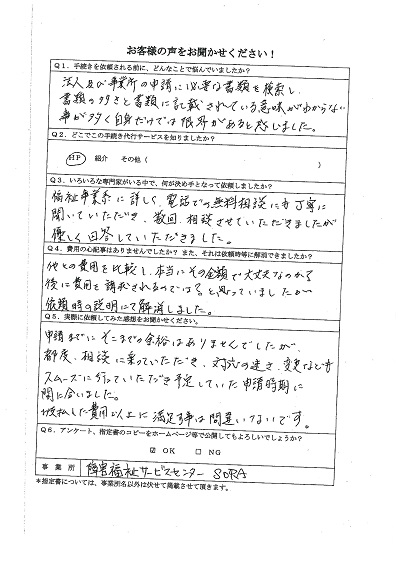 お客様の声をお聞かせください！
Q１．手続きを依頼される前に、どんなことで悩んでいましたか？
法人及び事業所の申請に必要な書類を検索し、
書類の多さと書類に記載されている意味がわからない
事が多く自身だけでは限界があると感じました。
Q２．どこでこの手続き代行サービスを知りましたか？
HP 紹介 その他（ ）
Q３．いろいろな専門家がいる中で、何が決め手となって依頼しましたか？
福祉事業系に詳しく、電話での無料相談にも丁寧に
聞いていただき、数回、相談させていただきましたが
優しく回答していただきました。
Q４．費用の心配事はありませんでしたか？また、それは依頼時等に解消できましたか？
他との費用を比較し、本当にその金額で大丈夫なのか？
後に費用を請求されるのでは？と思っていましたが
依頼時の説明にて解消しました。
Q５．実際に依頼してみた感想をお聞かせください。
申請までにそこまでの余裕はありませんでしたが、
都度、相談に乗っていただき、対応の速さ、変更なども
スムーズに行っていただき予定していた申請時期に
間に合いました。
支払した費用以上に満足事は間違いないです。
Q６．アンケート、指定書のコピーをホームページ等で公開してもよろしいでしょうか？
☑ OK □ NG
事業所 障害福祉サービスセンター SORA
＊指定書については、事業所名以外は伏せて掲載させて頂きます。